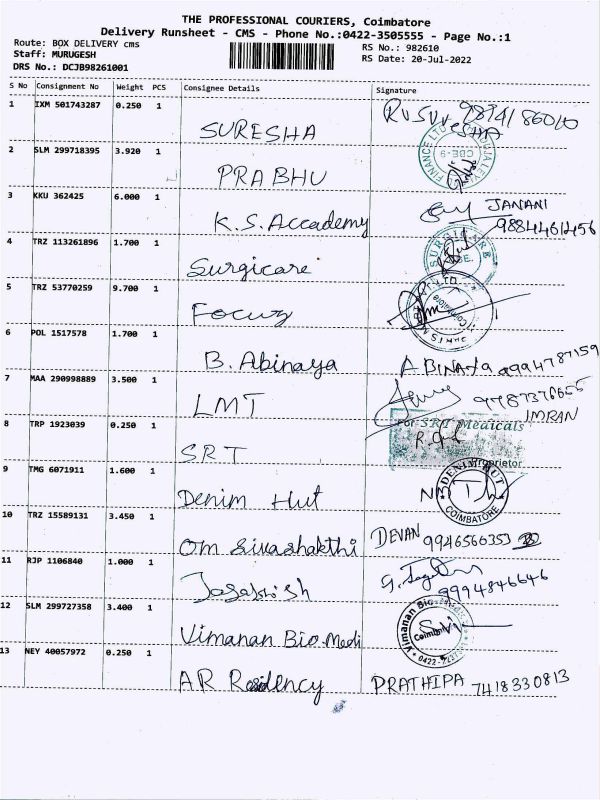 THE PROFESSIONAL COURIERS, Coimbatore
Delivery Runsheet - CMS - Phone No.:0422-3505555 - Page No.:1
Route: BOX DELIVERY cms
RS No.: 982610
Staff: MURUGESH
RS Date: 20-Jul-2022
DRS No.: DCJB98261001
S No Consignment No Weight PCS Consignee Details Signature
1 IXM 501743287 0.250 1
SURESHA
2 SLM 299718395 3.920 1
CBE-9
PRABHU
3 KKU 362425 6.000 1
JANANI
K.S. Accademy 9884461456
4 TRZ 113261896 1.700 1
SURGICARE
Surgicare
5 TRZ 53770259 9.700 1
Focuz
6 POL 1517578 1.700 1
B. Abinaya ABINAYA 9994787159
7 MAA 290998889 3.500 1
LMT IMRAN
8 TRP 1923039 0.250 1
For SRT Medicals
SRT Proprietor
9 TMG 6071911 1.600 1
DENIM HUT
Denim Hut
COIMBATORE
10 TRZ 15589131 3.450 1
OM Sivashakthi DEVAN 9946566353
11 RJP 1106840 1.000 1
9994846646
12 SLM 299727358 3.400 1
Vimanan Bio
Vimanan Bio Medi
13 NEY 40057972 0.250 1
AR Residency PRATHIPA 7418330813